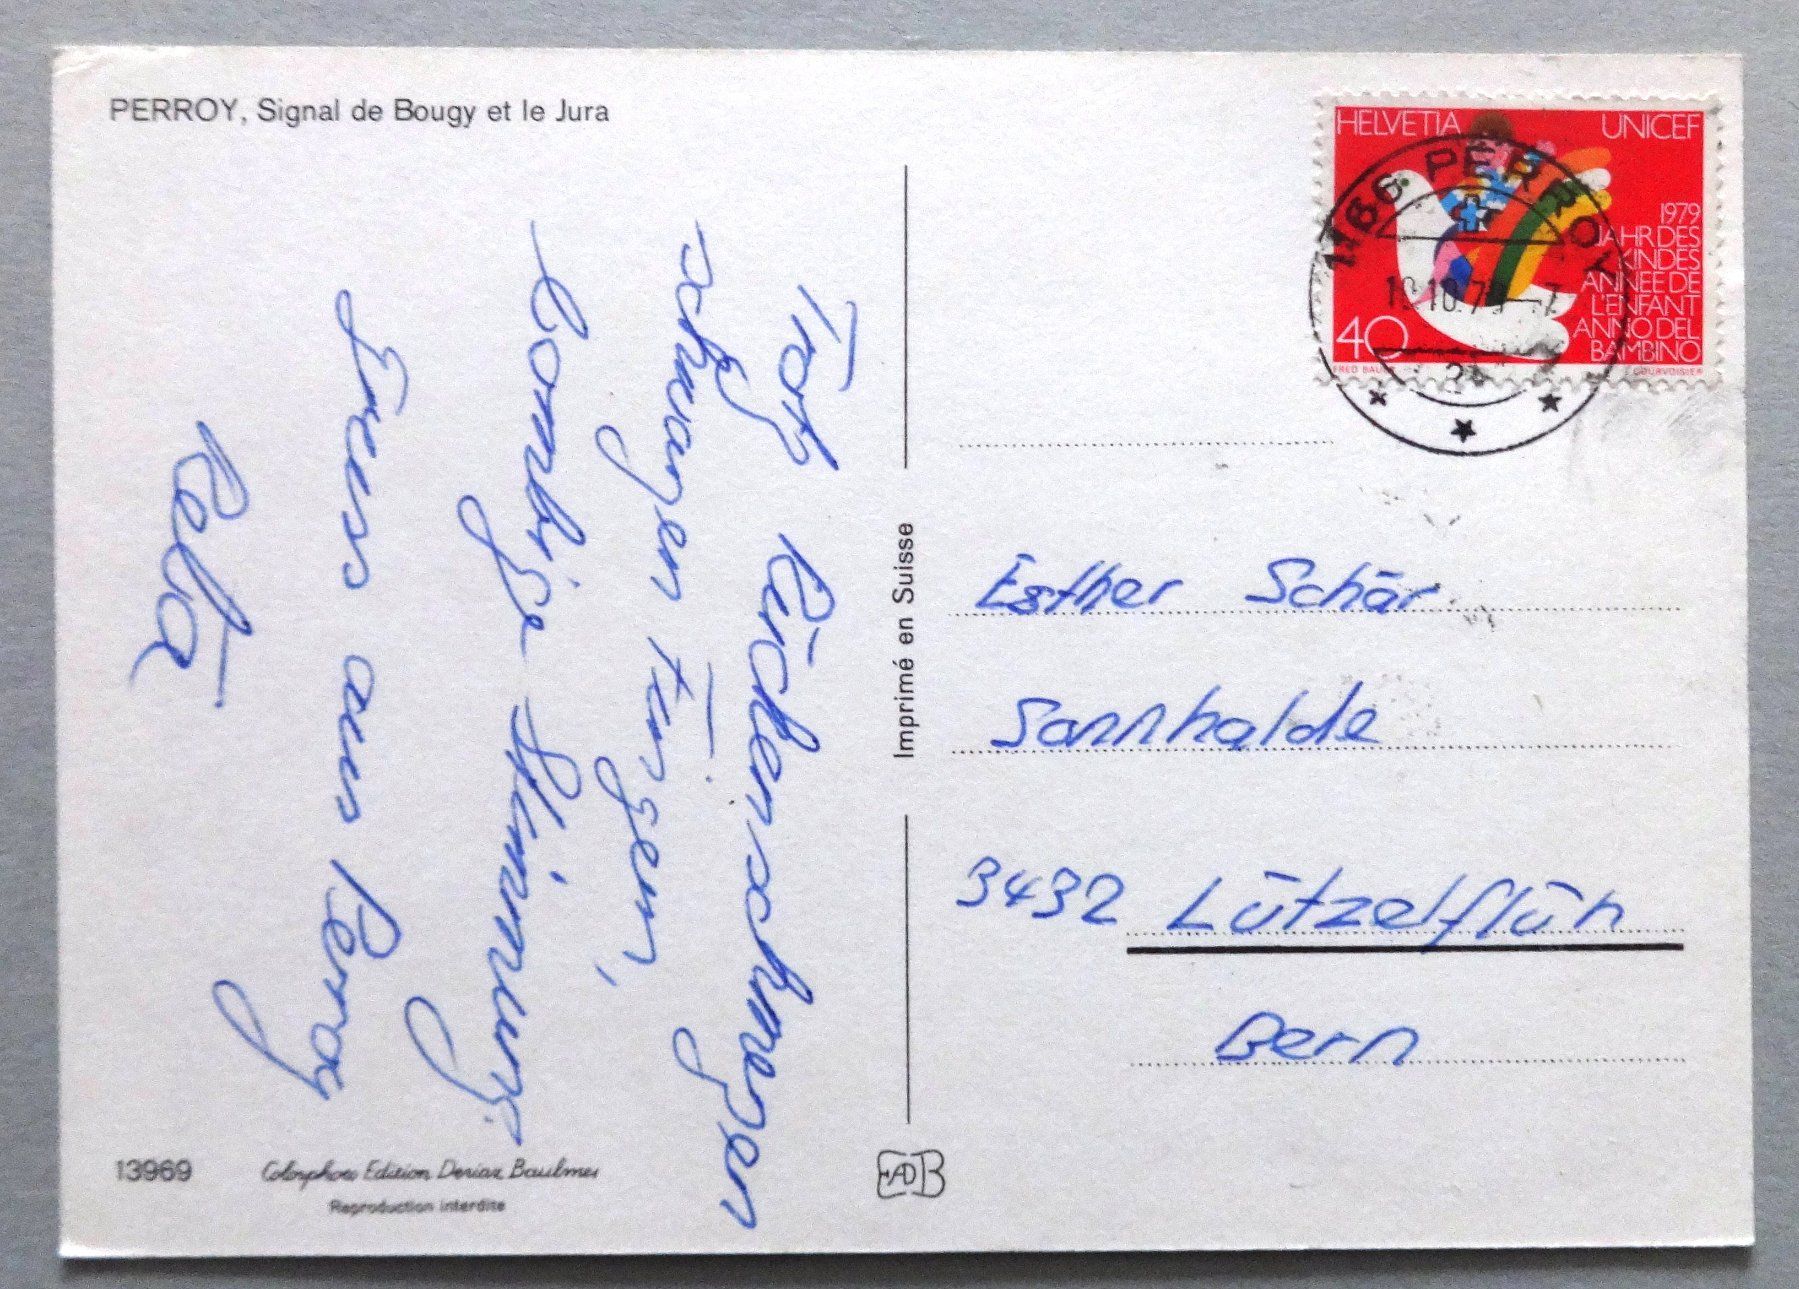 PERROY, Signal de Bougy et le Jura
Trotz Rückenschmerzen
schwarzen Fingern,
bombige Stimmung.
Gruss aus Perroy
Reta
13969
Colorphoto Edition Deriaz Baulmes
Reproduction interdite
Imprimé en Suisse
EADB
HELVETIA UNICEF
1979
JAHR DES
KINDES
ANNEE DE
L'ENFANT
ANNO DEL
BAMBINO
40
FRED BAUER COURVOISIER
1166 PERROY
10.10.79-7
Esther Schär
Sonnhalde
3432 Lützelflüh
Bern